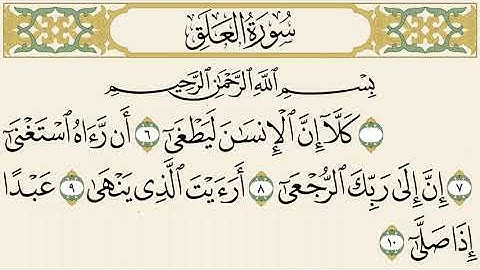 سُورَةُ الْعَلَقِ
بِسْمِ اللَّهِ الرَّحْمَٰنِ الرَّحِيمِ
كَلَّآ إِنَّ ٱلْإِنسَـٰنَ لَيَطْغَىٰٓ ٦ أَن رَّءَاهُ ٱسْتَغْنَىٰٓ
٧ إِنَّ إِلَىٰ رَبِّكَ ٱلرُّجْعَىٰٓ ٨ أَرَءَيْتَ ٱلَّذِى يَنْهَىٰ ٩ عَبْدًا
إِذَا صَلَّىٰٓ ١٠